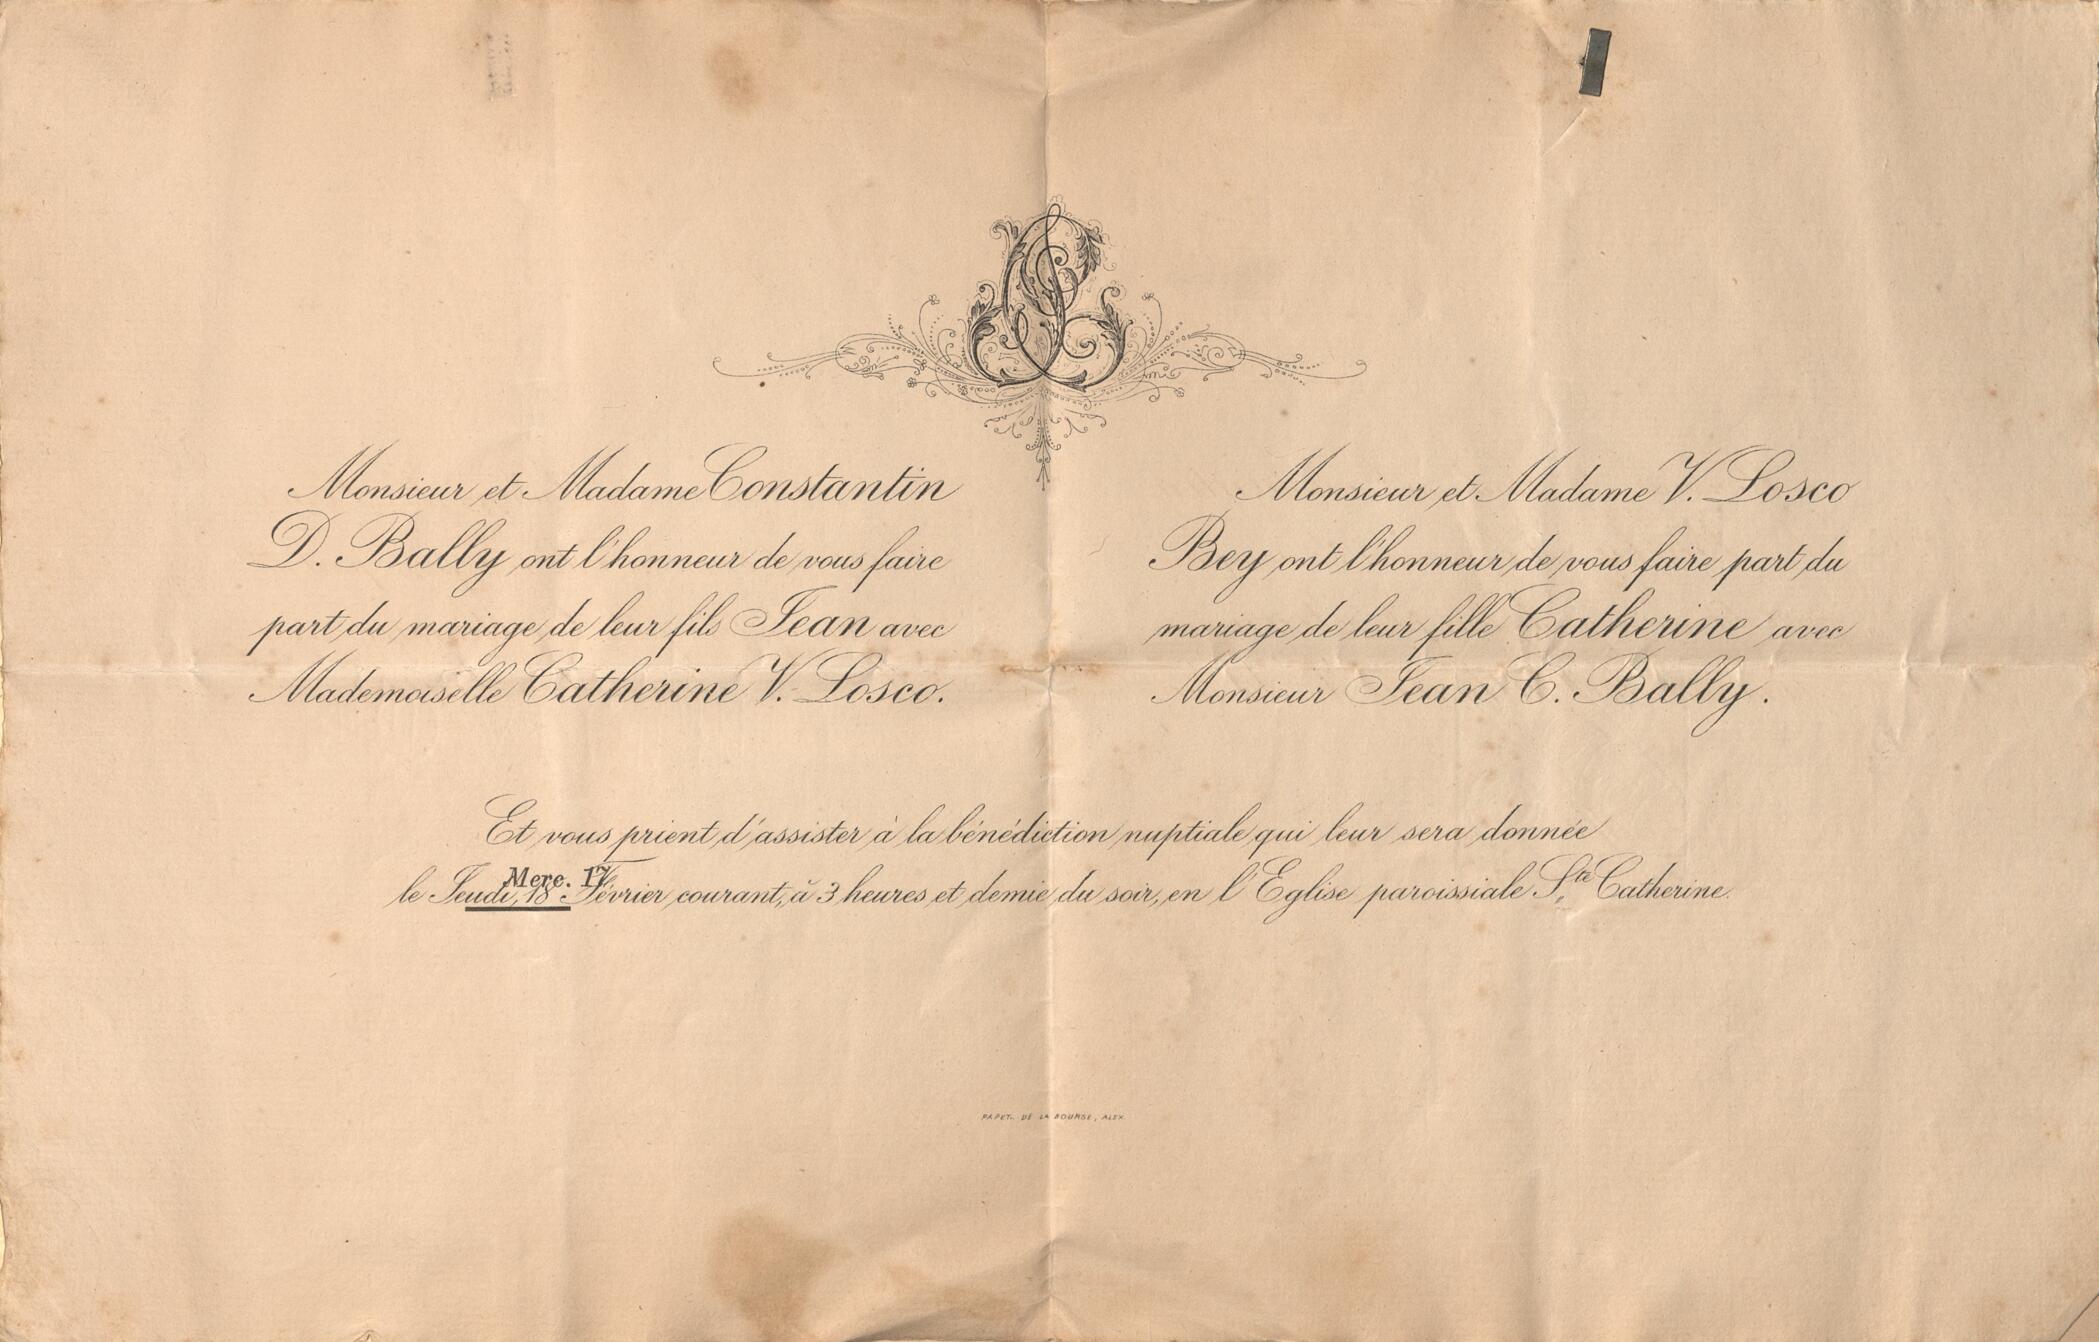 Monsieur et Madame Constantin
D. Bally ont l'honneur de vous faire
part du mariage de leur fils Jean avec
Mademoiselle Catherine V. Losco.
Monsieur et Madame V. Losco
Bey ont l'honneur de vous faire part du
mariage de leur fille Catherine avec
Monsieur Jean C. Bally.
Et vous prient d'assister à la bénédiction nuptiale qui leur sera donnée
Merc. 17
le Jeudi, 18 Février courant, à 3 heures et demie du soir, en l'Eglise paroissiale Ste Catherine.
PAPET. DE LA BOURSE, ALEX.